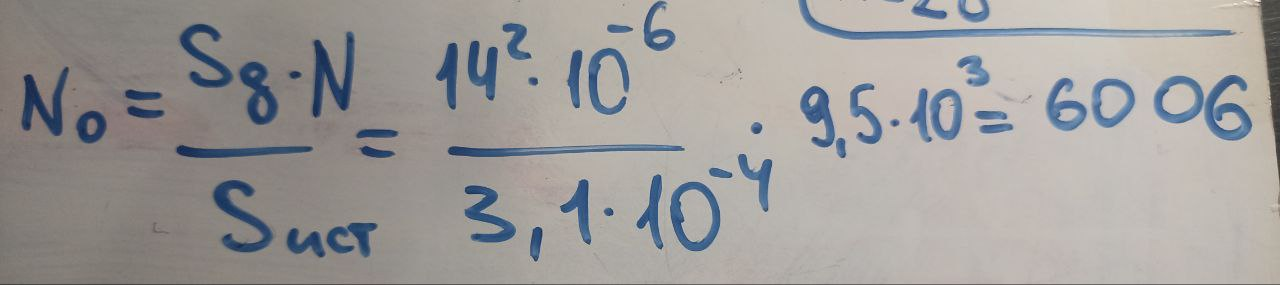 20
N₀ = Sg·N / Sист = 14²·10⁻⁶ / 3,1·10⁻⁴ · 9,5·10³ = 6006